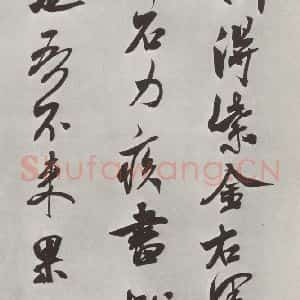 得紫金右軍
石力疾書
也吾不来果
ShufaWang.CN